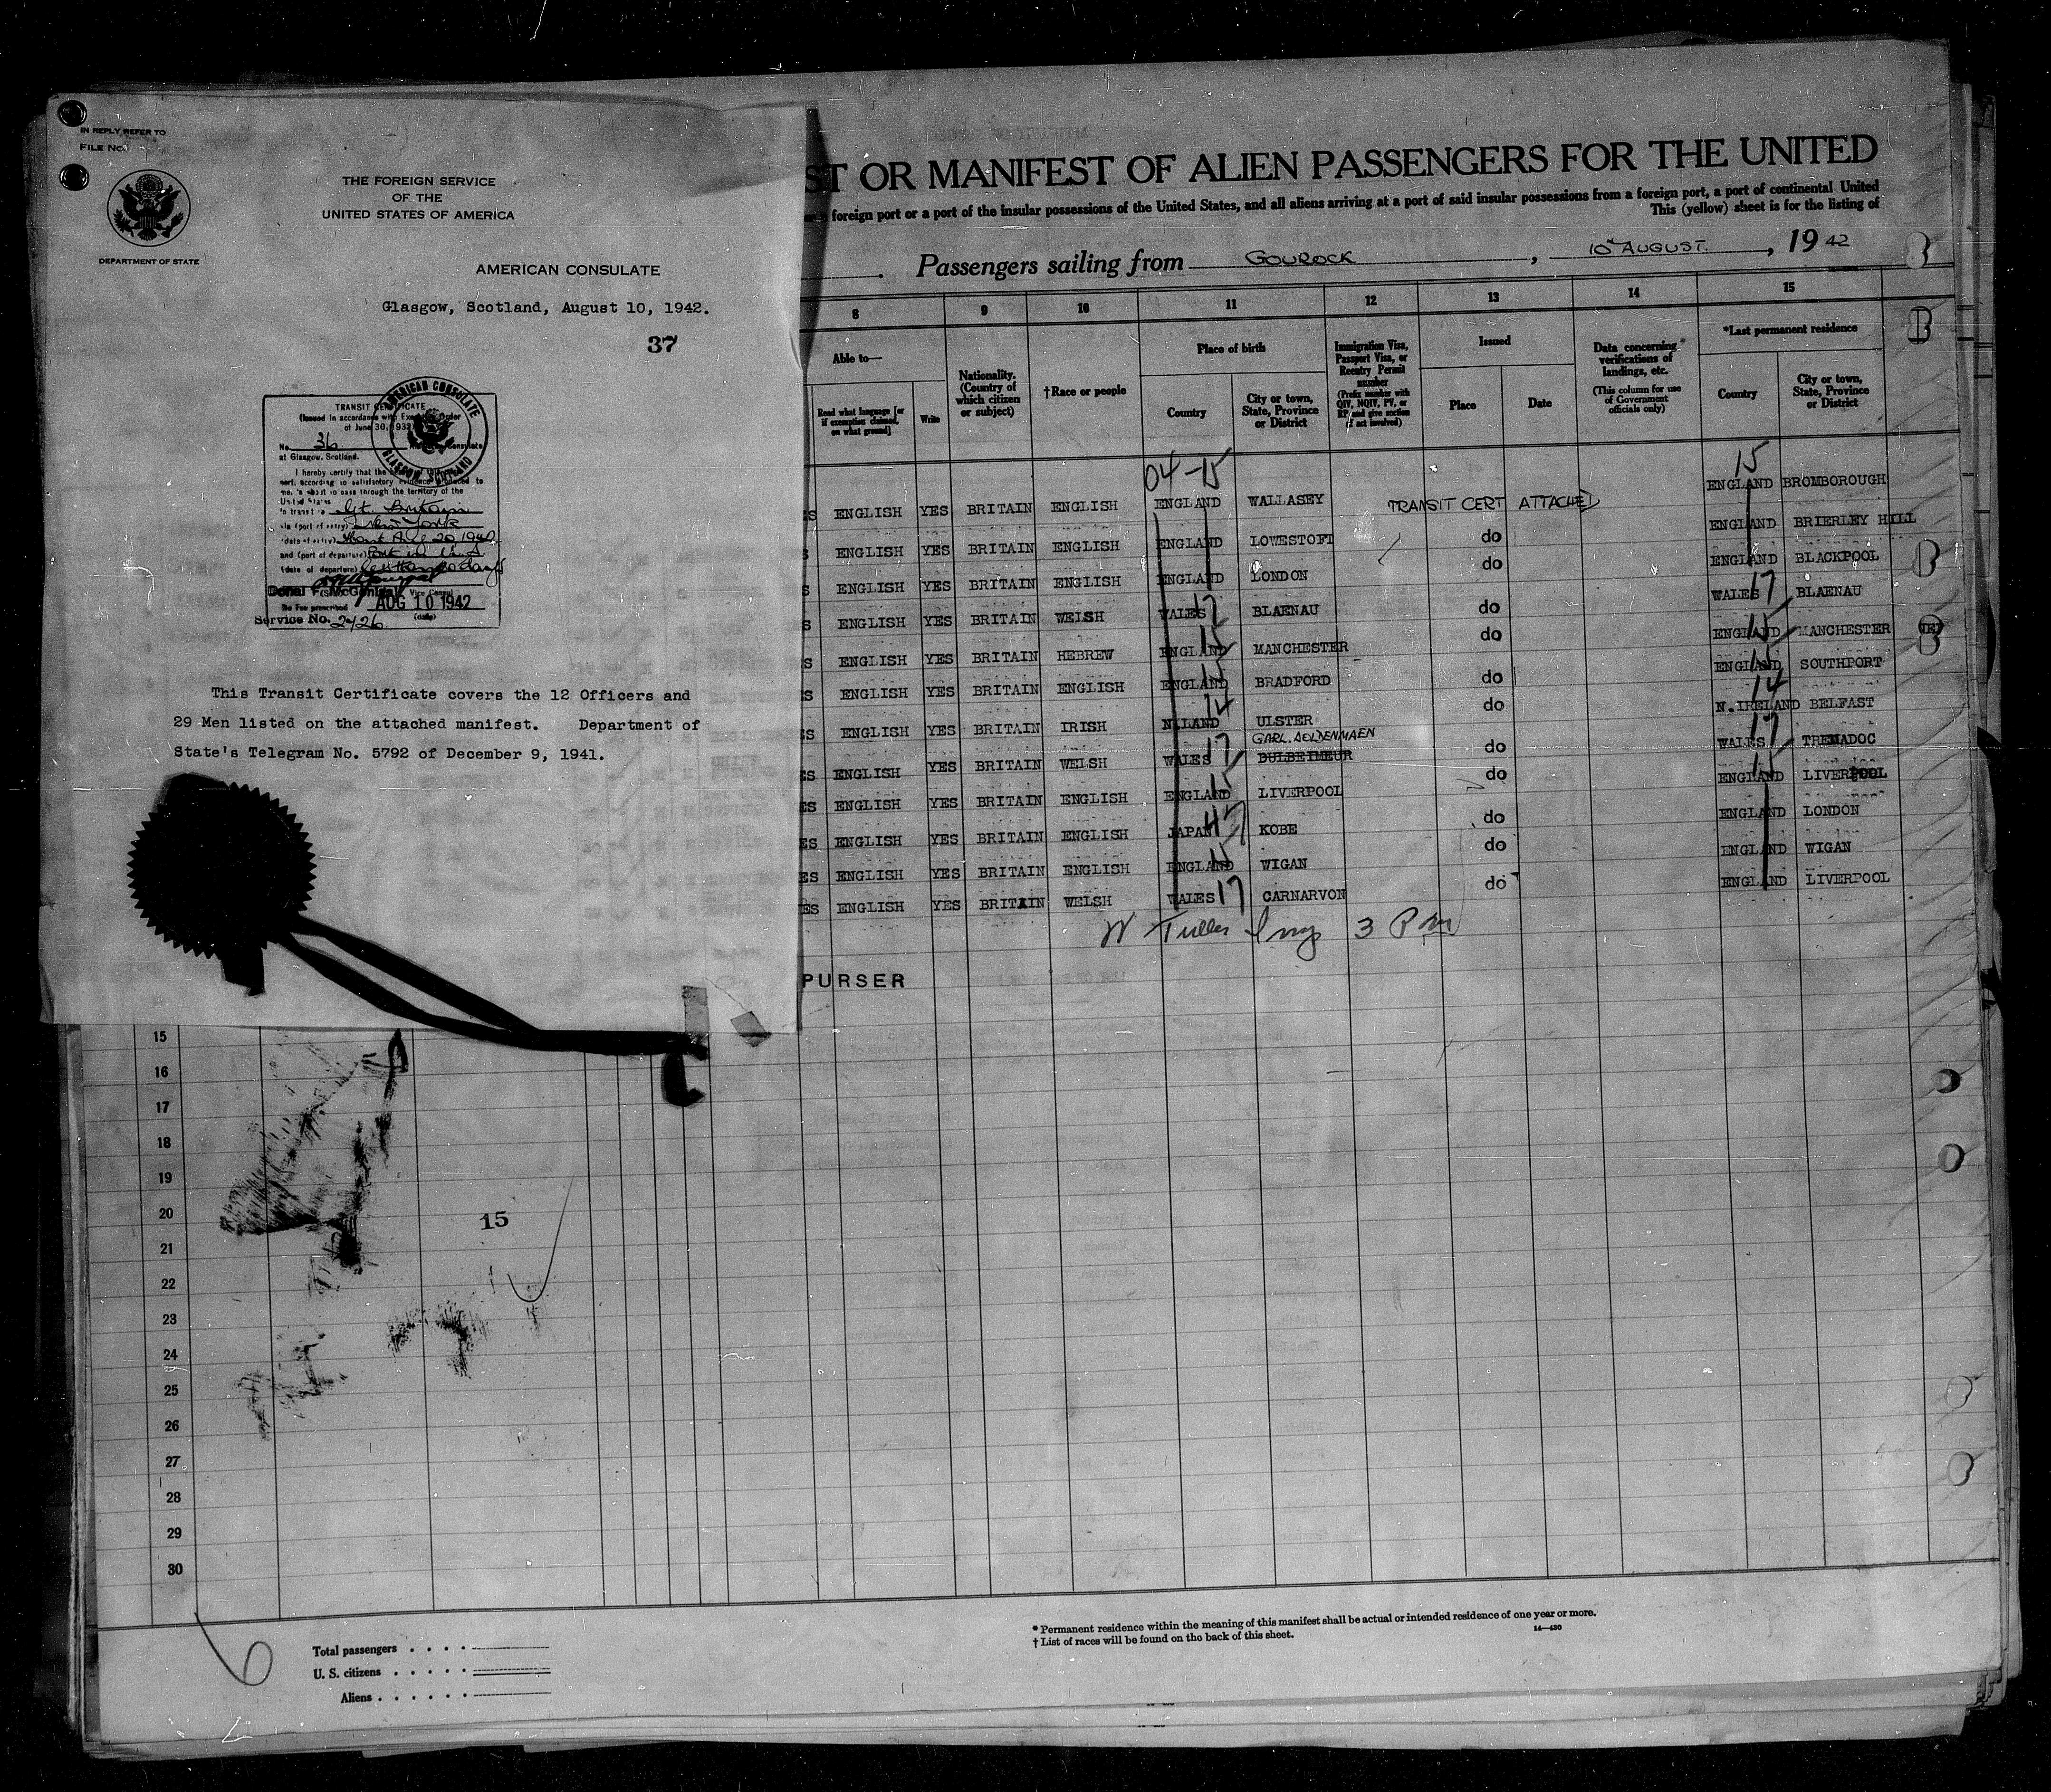 IN REPLY REFER TO
FILE No.
THE FOREIGN SERVICE
OF THE
UNITED STATES OF AMERICA
DEPARTMENT OF STATE
AMERICAN CONSULATE
Glasgow, Scotland, August 10, 1942.
37
TRANSIT CERTIFICATE
(Issued in accordance with Executive Order
of June 30, 1932)
No. 36
at Glasgow, Scotland.
AMERICAN CONSULATE
GLASGOW, SCOTLAND
I hereby certify that the
according to satisfactory evidence produced to
me, is about to pass through the territory of the
United States
in transit to Gt. Britain
via (port of entry) New York
(date of entry) About Aug 20 1942
and (port of departure) Port in U.S.
(date of departure) less than 60 days
Donal F. McGonigal Vice Consul
No Fee prescribed AUG 10 1942
(date)
Service No. 2426
This Transit Certificate covers the 12 Officers and
29 Men listed on the attached manifest. Department of
State's Telegram No. 5792 of December 9, 1941.
ST OR MANIFEST OF ALIEN PASSENGERS FOR THE UNITED
foreign port or a port of the insular possessions of the United States, and all aliens arriving at a port of said insular possessions from a foreign port, a port of continental United
This (yellow) sheet is for the listing of
Passengers sailing from GOUROCK, 10th AUGUST., 1942
8 9 10 11 12 13 14 15
Able to—
Read what language [or if exemption claimed, on what ground]
Write
Nationality. (Country of which citizen or subject)
†Race or people
Place of birth
Country
City or town, State, Province or District
Immigration Visa, Passport Visa, or Reentry Permit number
(Prefix number with QIV, NQIV, PV, or RP and give section of act involved)
Issued
Place
Date
Data concerning verifications of landings, etc.
(This column for use of Government officials only)
*Last permanent residence
Country
City or town, State, Province or District
04-15 15
S ENGLISH YES BRITAIN ENGLISH ENGLAND WALLASEY TRANSIT CERT ATTACHED ENGLAND BROMBOROUGH
S ENGLISH YES BRITAIN ENGLISH ENGLAND LOWESTOFT do ENGLAND BRIERLEY HILL
S ENGLISH YES BRITAIN ENGLISH ENGLAND LONDON do ENGLAND BLACKPOOL
S ENGLISH YES BRITAIN WELSH WALES 17 BLAENAU do WALES 17 BLAENAU
S ENGLISH YES BRITAIN HEBREW ENGLAND 15 MANCHESTER do ENGLAND 15 MANCHESTER
S ENGLISH YES BRITAIN ENGLISH ENGLAND 15 BRADFORD do ENGLAND 15 SOUTHPORT
S ENGLISH YES BRITAIN IRISH N.LAND 14 ULSTER do N.IRELAND 14 BELFAST
ES ENGLISH YES BRITAIN WELSH WALES 17 DULBEIMEUR do WALES 17 TREMADOC
ES ENGLISH YES BRITAIN ENGLISH ENGLAND 15 LIVERPOOL do ENGLAND 15 LIVERPOOL
ES ENGLISH YES BRITAIN ENGLISH JAPAN KOBE do ENGLAND LONDON
ES ENGLISH YES BRITAIN ENGLISH ENGLAND 15 WIGAN do ENGLAND WIGAN
ES ENGLISH YES BRITAIN WELSH WALES 17 CARNARVON do ENGLAND LIVERPOOL
W Tuller Insp 3 P M
PURSER
15
16
17
18
19
20
15
21
22
23
24
25
26
27
28
29
30
6
Total passengers
U. S. citizens
Aliens
* Permanent residence within the meaning of this manifest shall be actual or intended residence of one year or more.
† List of races will be found on the back of this sheet.
14—430